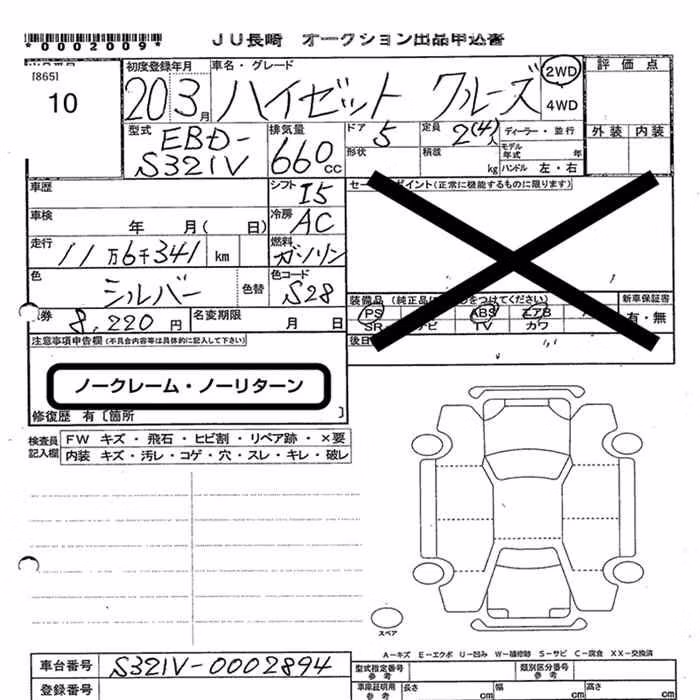 *0002009*
JU長崎 オークション出品申込書
[865]
10
初度登録年月
20 3月
車名・グレード
ハイゼット クルーズ
2WD
4WD
評価点
外装 内装
型式
EBD-
S321V
排気量
660cc
ドア 5
形状
定員 2(4)人
積載 kg
ディーラー・並行
モデル年式 年
ハンドル 左・右
車歴
シフト I5
車検 年 月( 日)
冷房 AC
走行 11万6千341 km
燃料 ガソリン
色 シルバー 色替
色コード S28
券 8,220円
名変期限 月 日
ポイント(正常に機能するものに限ります)
装備品(純正品は のをつけてください)
PS ABS エアB
SR ナビ TV カワ
新車保証書
有・無
後日
注意事項申告欄(不具合内容等は具体的に記入して下さい)
ノークレーム・ノーリターン
修復歴 有〔箇所 〕
検査員記入欄
FW キズ・飛石・ヒビ割・リペア跡・×要
内装 キズ・汚レ・コゲ・穴・スレ・キレ・破レ
スペア
A-キズ E-エクボ U-凹み W-補修跡 S-サビ C-腐食 XX-交換済
車台番号 S321V-0002894
登録番号
型式指定番号 参考
類別区分番号 参考
車庫証明用 参考
長さ cm 幅 cm 高さ cm